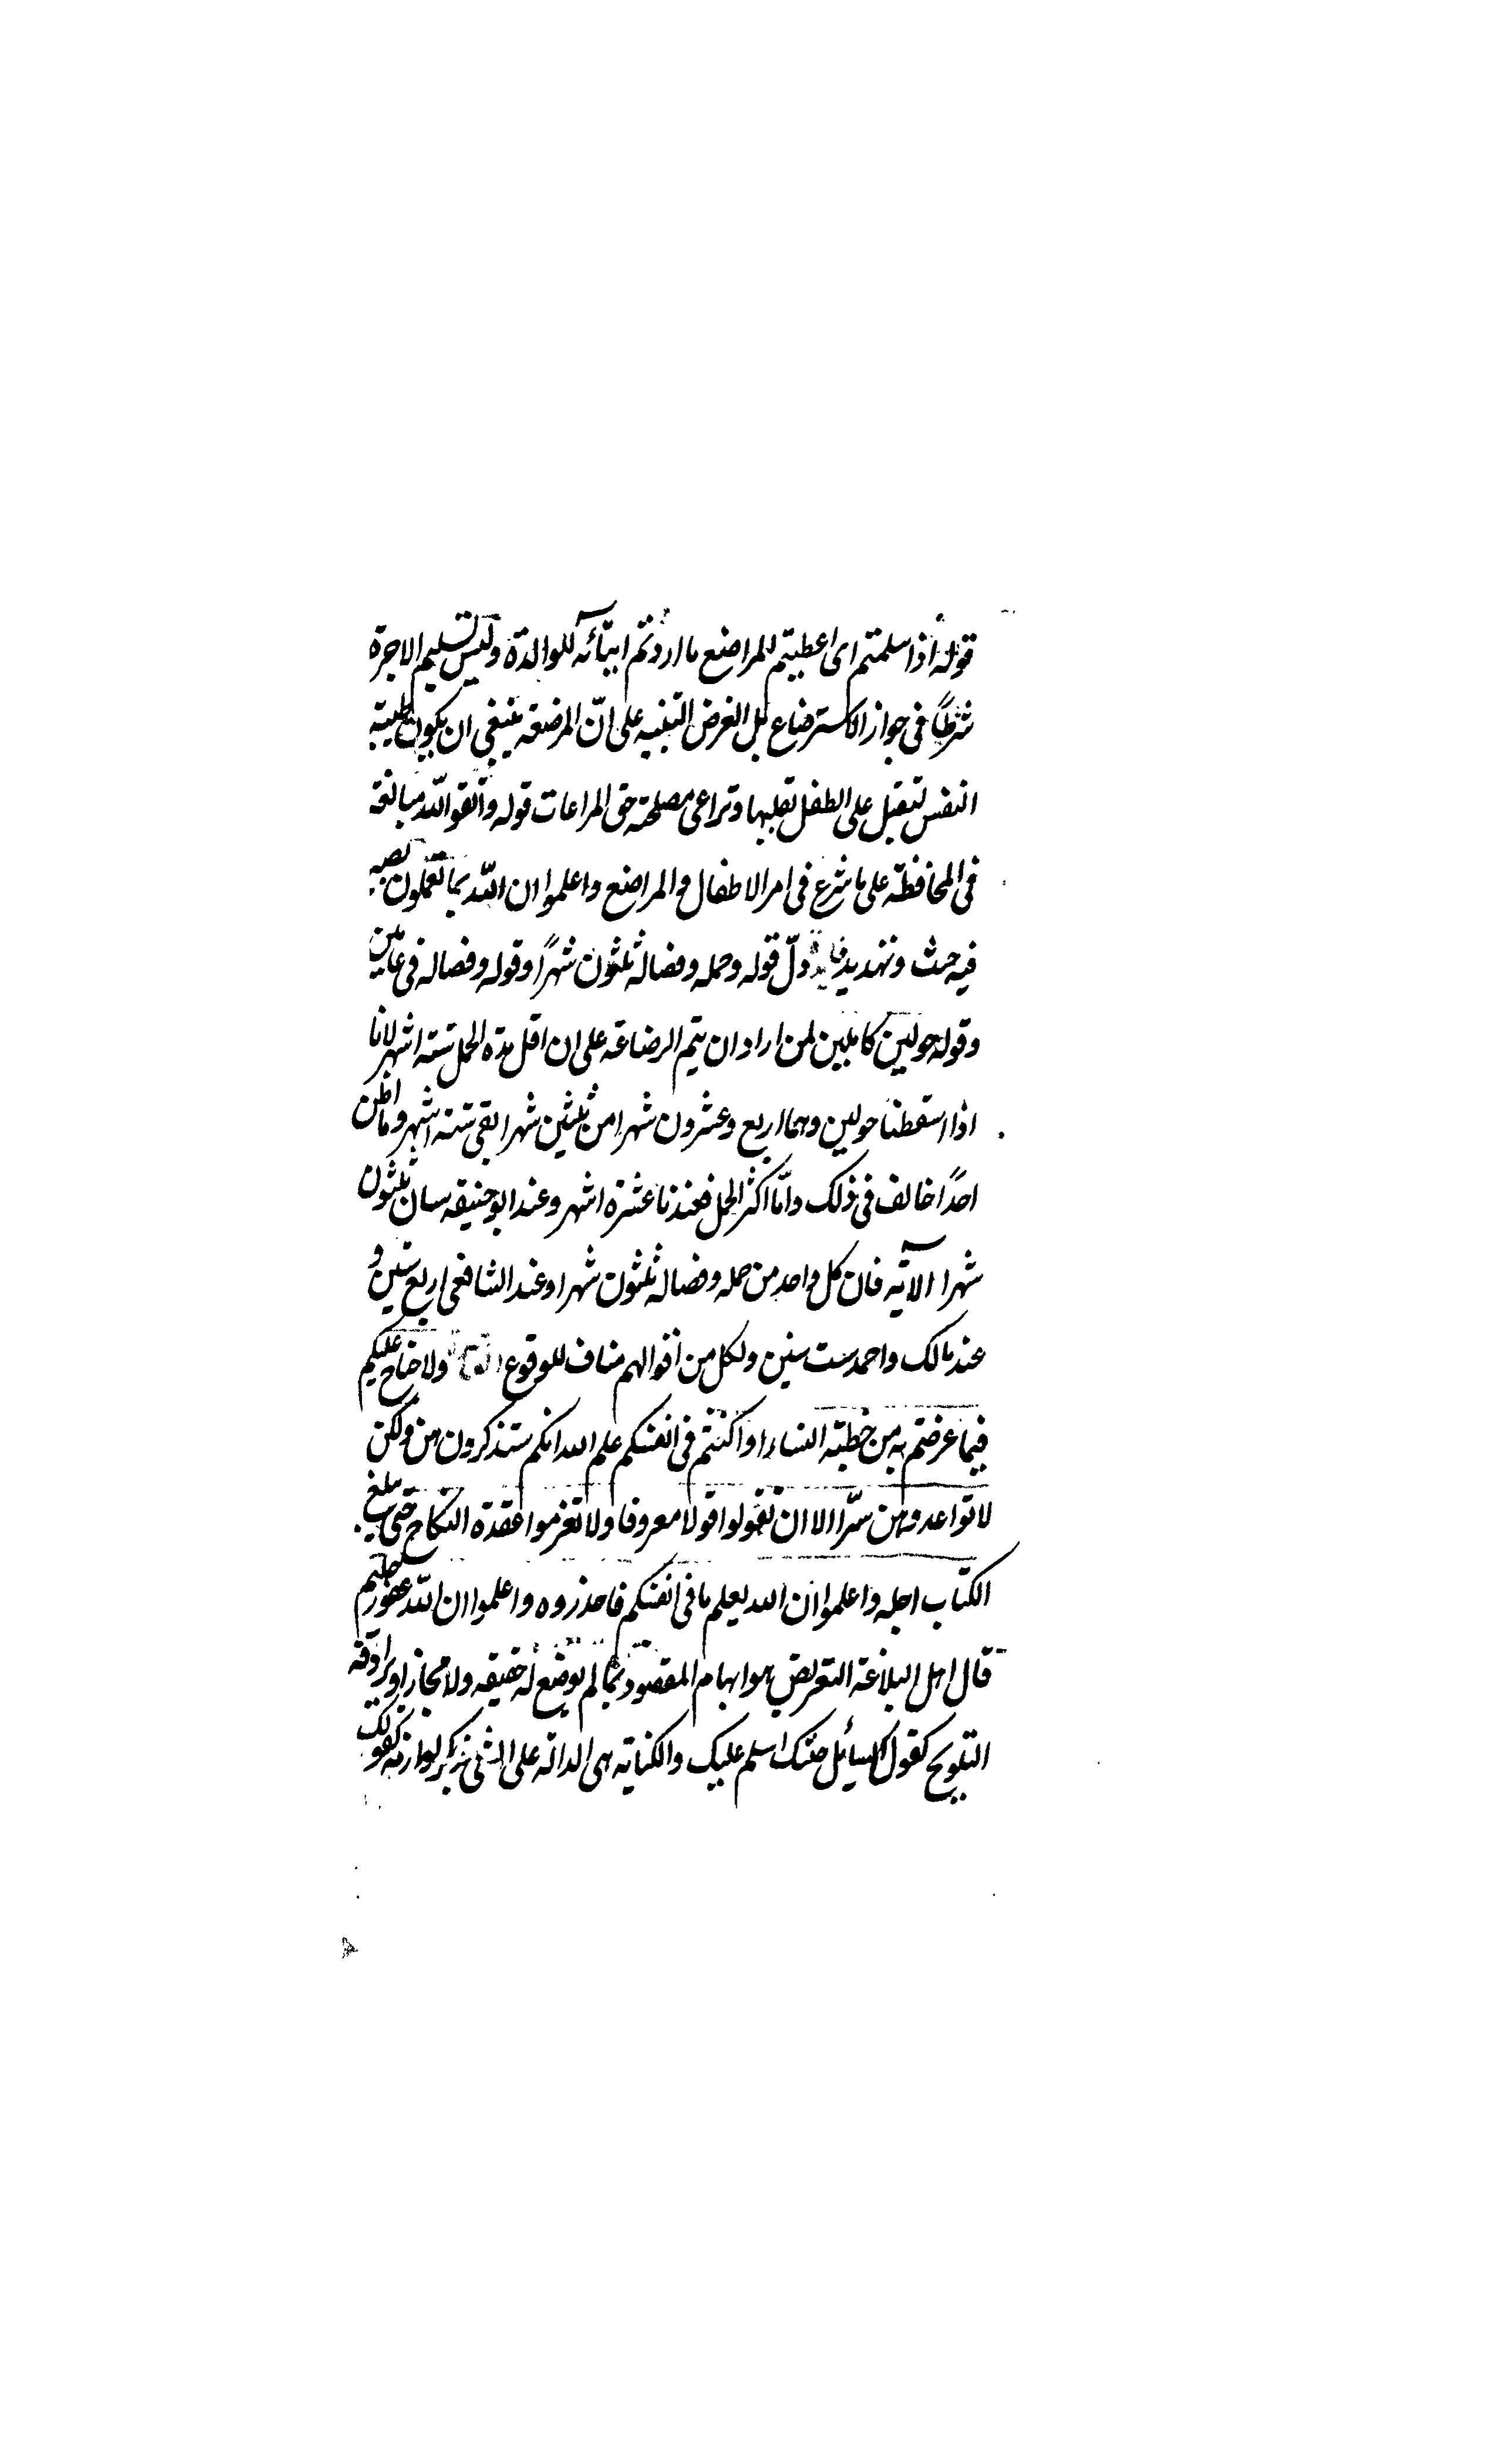 قوله اذا سلمتم اى اعطيتم للمراضع ما اردتم ايتائه للوالدة وليس تسليم الاجرة
شرطاً فى جواز الاسترضاع بل الغرض التنبيه على انّ المرضعة ينبغى ان يكون طيبة
النفس لتقبل على الطفل بقلبها وتراعى مصلحته حق المراعات قوله واتقوا الله مبالغة
فى المحافظة على ما شرع فى امر الاطفال والمراضع واعلموا ان الله بما تعملون بصير
فيه حث وتهديد فايدة دلّ قوله وحمله وفصاله ثلثون شهرًا وقوله وفصاله فى عامين
وقوله حولين كاملين لمن اراد ان يتم الرضاعة على ان اقل مدة الحمل ستة اشهر لانا
اذا اسقطنا حولين وهما اربع وعشرون شهرا من ثلثين شهرا بقى ستة اشهر وما اظن
احدًا خالف فى ذلك وامّا اكثر الحمل فعندنا عشرة اشهر وعند ابو حنيفه سان ثلثون
شهرا الآية فان كل واحد من حمله وفصاله ثلثون شهرا وعند الشافعى اربع سنين و
عند مالك واحمد ست سنين ولكل من اقوالهم مناف للوقوع ولا جناح عليكم
فيما عرضتم به من خطبة النساء او اكننتم فى انفسكم علم الله انكم ستذكرون هن ولكن
لا تواعدوهن سرّا الا ان تقولوا قولا معروفا ولا تعزموا عقدة النكاح حتى يبلغ
الكتاب اجله واعلموا ان الله يعلم ما فى انفسكم فاحذروه واعلموا ان الله غفور حليم
قال اهل البلاغة التعريض هو ايهام المقصود بما لم يوضع له حقيقه ولا مجاز او يرادفه
التلويح كقول السائل جئتك اسلم عليك والكناية هى الدالة على الشئ بذكر لوازمه كقولك